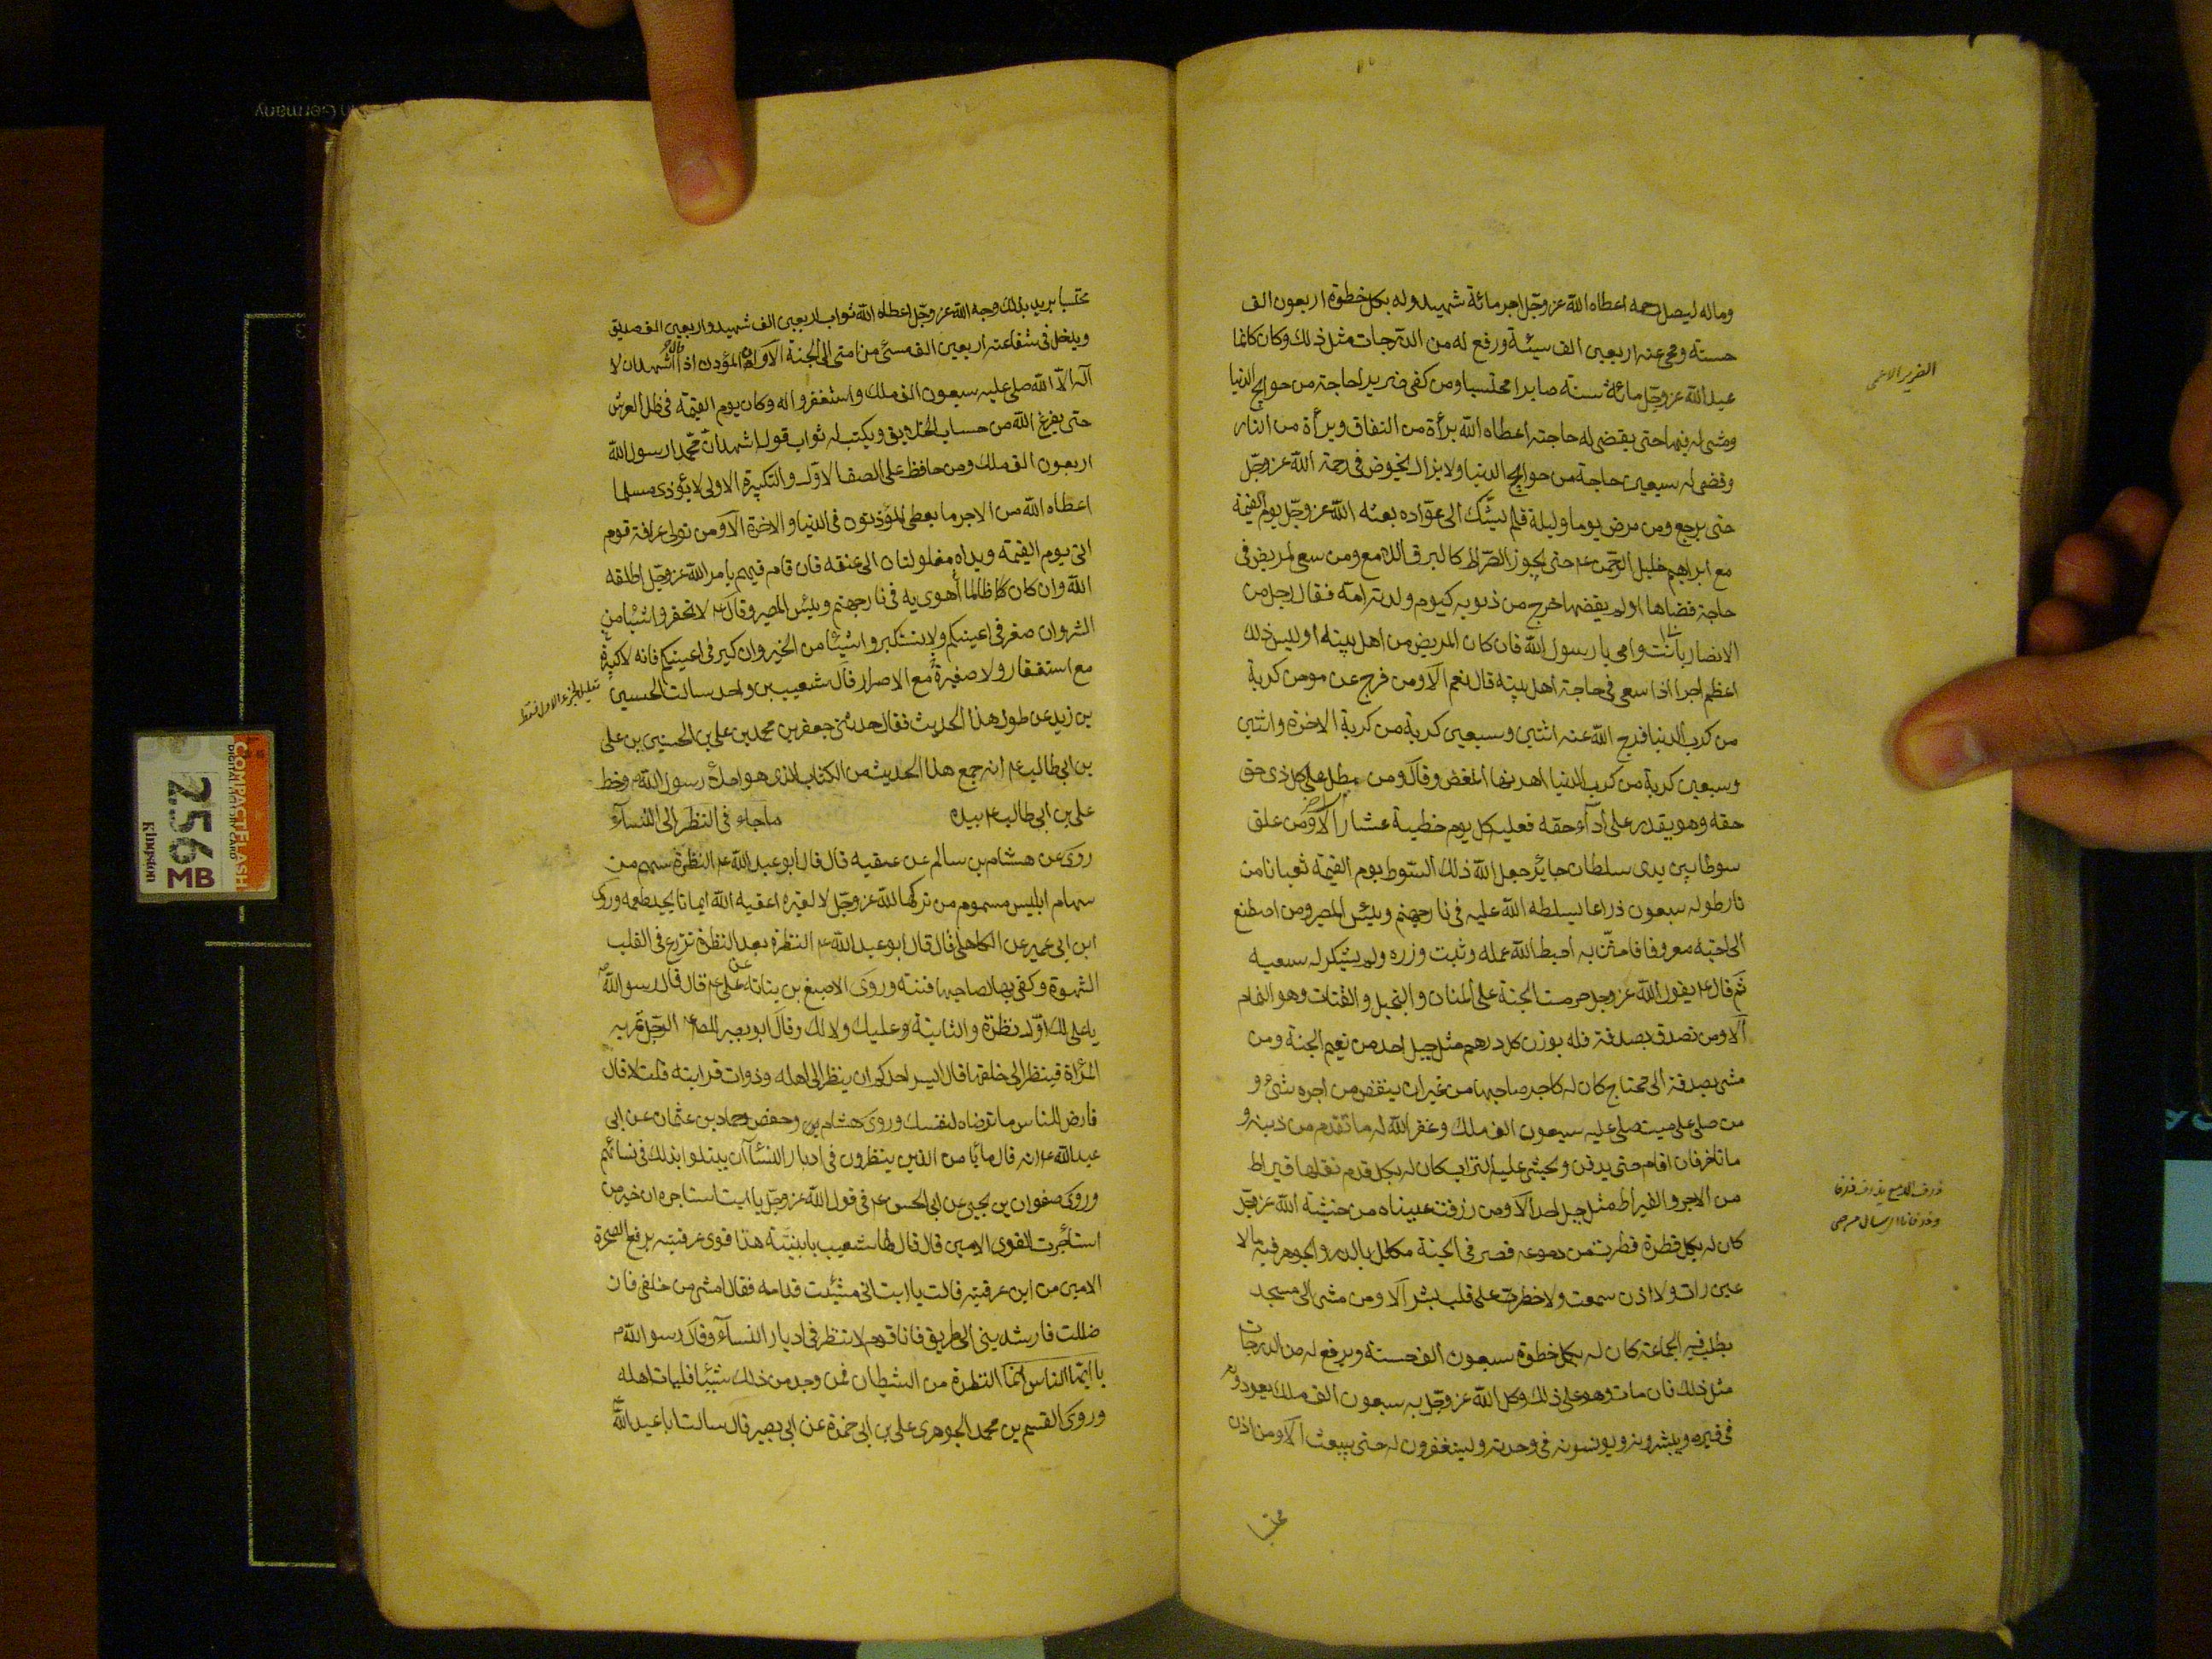 وماله ليصل رحمه اعطاه الله عز وجل اجر مائة شهيد وله بكل خطوة اربعون الف
حسنة ومحى عنه اربعين الف سيئة ورفع له من الدرجات مثل ذلك وكان كانما
عبد الله عز وجل مائة سنة صابرا محتسبا ومن كفى ضريرا حاجة من حوايج الدنيا
ومشى له فيها حتى يقضى له حاجته اعطاه الله برأة من النفاق وبرأة من النار
وقضى له سبعين حاجة من حوايج الدنيا ولا يزال يخوض فى رحمة الله عز وجل
حتى يرجع ومن مرض يوما وليلة فلم يشك الى عواده بعثه الله عز وجل يوم القيمة
مع ابراهيم خليل الرحمن ع حتى يجوز الصراط كالبرق اللامع ومن سعى لمريض فى
حاجة قضاها اولم يقضها خرج من ذنوبه كيوم ولدته امه فقال رجل من
الانصار بابى انت وامى يا رسول الله فان كان المريض من اهل بيته اوليس ذلك
اعظم اجرا اذا سعى فى حاجة اهل بيته قال نعم الا ومن فرج عن مومن كربة
من كرب الدنيا فرج الله عنه اثنتين وسبعين كربة من كربة الاخرة واثنتين
وسبعين كربة من كرب الدنيا اهونها المغص وقال ومن يمطل على كل ذى حق
حقه وهو يقدر على اداء حقه فعليه كل يوم خطيئة عشار الا ومن علق
سوطا بين يدى سلطان جاير جعل الله ذلك السوط يوم القيمة ثعبانا من
نار طوله سبعون ذراعا ليسلطه الله عليه فى نار جهنم وبئس المصير ومن اصطنع
الى اخيه معروفا فامتن به احبط الله عمله وثبت وزره ولم يشكر له سعيه
ثم قال ع يقول الله عز وجل حرمت الجنة على المنان والبخيل والقتات وهو النمام
الا ومن تصدق بصدقة فله بوزن كل درهم مثل جبل احد من نعيم الجنة ومن
مشى بصدقة الى محتاج كان له كاجر صاحبها من غير ان ينقص من اجره شئ و
من صلى على ميت صلى عليه سبعون الف ملك وغفر الله له ما تقدم من ذنبه و
ما تاخر فان اقام حتى يدفن ويحثى عليه التراب كان له بكل قدم نقلها قيراط
من الاجر والقيراط مثل جبل احد الا ومن ذرفت عيناه من خشية الله عز وجل
كان له بكل قطرة قطرت من دموعه قصر فى الجنة مكلل بالدر والجوهر فيه مالا
عين رات ولا اذن سمعت ولا خطر على قلب بشر الا ومن مشى الى مسجد
يطلب فيه الجماعة كان له بكل خطوة سبعون الف حسنة ويرفع له من الدرجات
مثل ذلك فان مات وهو على ذلك وكل الله عز وجل به سبعون الف ملك يعودونه
فى قبره ويبشرونه ويونسونه فى وحدته ويستغفرون له حتى يبعث الا ومن اذن
الضرير الاعمى
ذرف الدمع يذرف ذرفا
محتسبا
محتسبا يريد بذلك وجه الله عز وجل اعطاه الله ثواب اربعين الف شهيد واربعين الف صديق
ويدخل فى شفاعته اربعين الف مسئ من امتى الى الجنة الا وان المؤذن اذا قال اشهد ان لا
اله الا الله صلى عليه سبعون الف ملك واستغفروا له وكان يوم القيمة فى ظل العرش
حتى يفرغ الله من حساب الخلايق ويكتب له ثواب قوله اشهد ان محمدا رسول الله
اربعون الف ملك ومن حافظ على الصف الاول والتكبيرة الاولى لا يؤذى مسلما
اعطاه الله من الاجر ما يعطى المؤذنون فى الدنيا والاخرة الا ومن تولى عرافة قوم
اتى يوم القيمة ويداه مغلولتان الى عنقه فان قام فيهم بامر الله عز وجل اطلقه
الله وان كان ظالما اهوى به فى نار جهنم وبئس المصير وقال ع لا تحقروا شيئا من
الشر وان صغر فى اعينكم ولا تستكبروا شيئا من الخير وان كبر فى اعينكم فانه لا كبيرة
مع استغفار ولا صغيرة مع الاصرار قال شعيب بن واحد سالت الحسين
بن زيد عن طول هذا الحديث فقال حدثنى جعفر بن محمد بن على بن الحسين بن على
بن ابى طالب ع انه جمع هذا الحديث من الكتاب الذى هو املاء رسول الله وخط
على بن ابى طالب ع بيده ماجاء فى النظر الى النساء
روى عن هشام بن سالم عن عقبه قال قال ابو عبد الله ع النظرة سهم من
سهام ابليس مسموم من تركها لله عز وجل لا لغيره اعقبه الله ايمانا يجد طعمه وروى
ابن ابى عمير عن الكاهلى قال قال ابو عبد الله ع النظرة بعد النظرة تزرع فى القلب
الشهوة وكفى بها لصاحبها فتنة وروى الاصبغ بن نباته عن على ع قال قال رسول الله
يا على لك اول نظرة والثانية عليك ولا لك وقال ابو بصير للصا ع الرجل تمر به
المرأة فينظر الى خلفها قال ايسر احدكم ان ينظر الى اهله وذوات قرابته قلت لا قال
فارض للناس ما ترضاه لنفسك وروى هشام بن وحفص وحماد بن عثمان عن ابى
عبد الله ع انه قال ما يامن الذين ينظرون فى ادبار النساء ان يبتلوا بذلك فى نسائهم
وروى صفوان بن يحيى عن ابى الحسن ع فى قول الله عز وجل يا ابت استاجره ان خير من
استأجرت القوى الامين قال قال لها شعيب يا بنية هذا قوى عرفتيه برفع الصخرة
الامين من اين عرفتيه قالت يا ابت انى مشيت قدامه فقال امشى من خلفى فان
ضللت فارشدينى الى الطريق فانا قوم لا ننظر فى ادبار النساء وقال رسول الله
يا ايها الناس انما النظرة من الشيطان فمن وجد من ذلك شيئا فليات اهله
وروى القسم بن محمد الجوهرى على بن ابى حمزة عن ابى بصير قال سالت ابا عبد الله
COMPACTFLASH
256
MB
Kingston